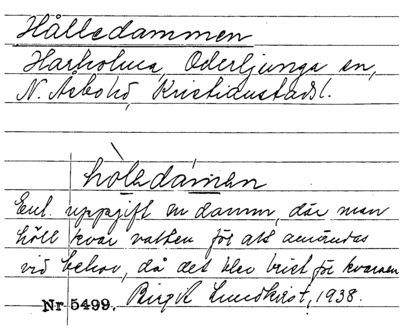 Hålledammen
Harholma, Oderljunga sn,
N. Åsbohd, Kristianstads l.
hòledámen
Enl. uppgift en damm, där man
höll kvar vatten för att användas
vid behov, då det blev brist för kvarnen
Nr 5499. Birgit Lundkvist, 1938.